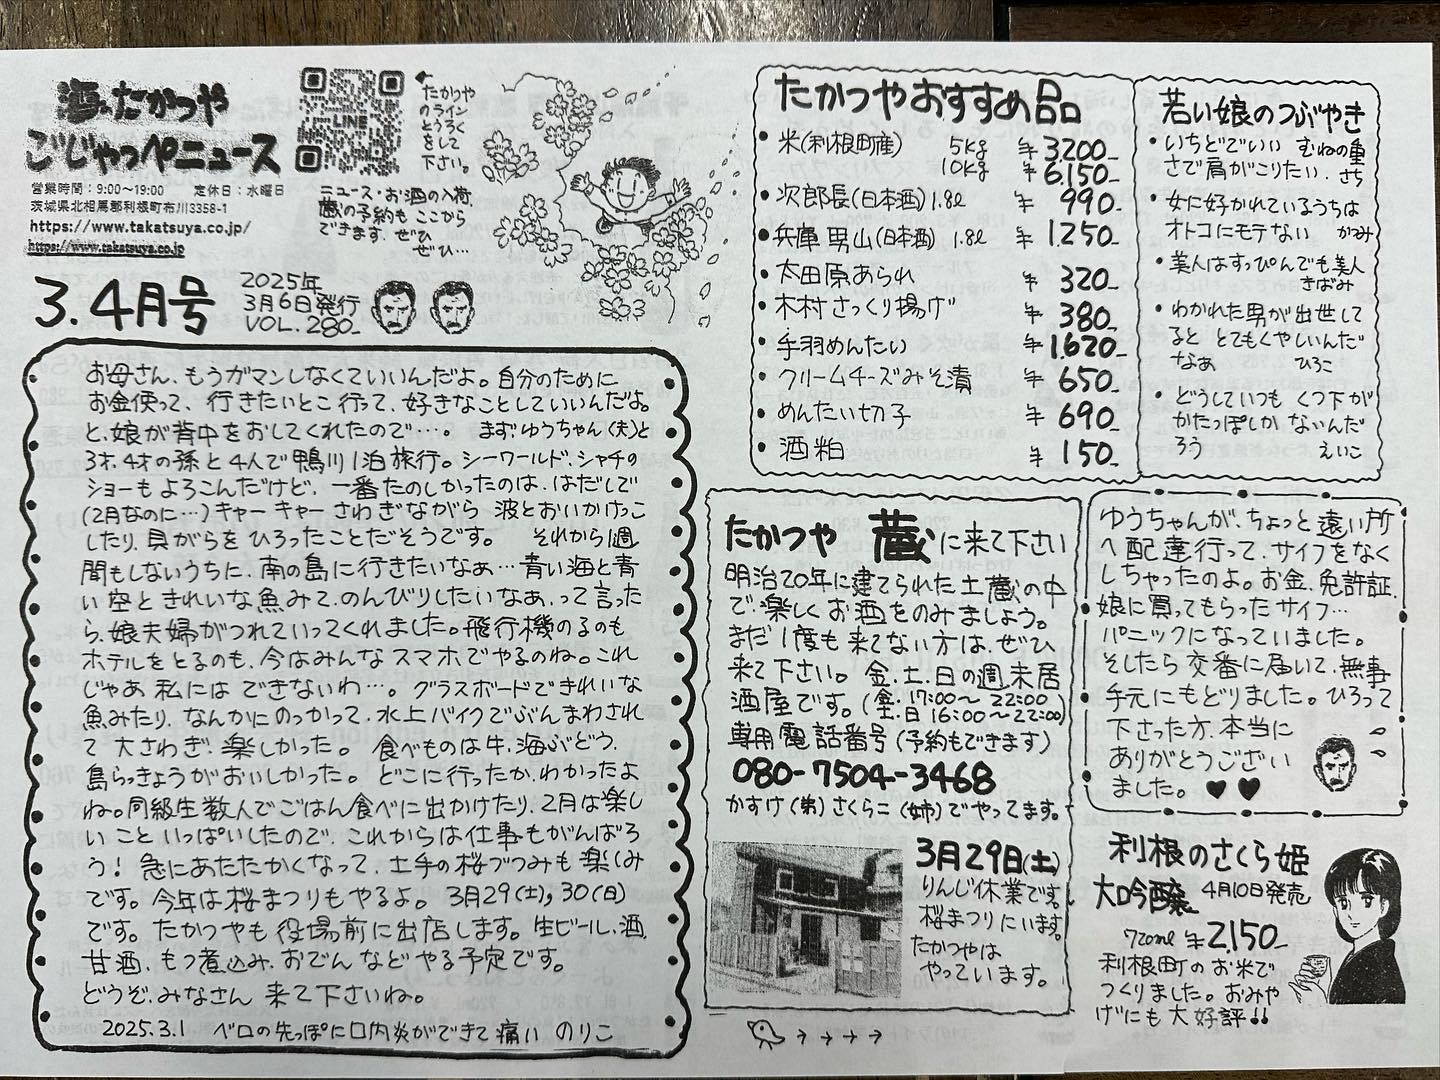 酒のたかつや
ごじゃっぺニュース
営業時間：9:00〜19:00　定休日：水曜日
茨城県北相馬郡利根町布川3358-1
https://www.takatsuya.co.jp/
https://www.takatsuya.co.jp
LINE
たかつや
のライン
とうろく
をして
下さい。
ニュース・お酒の入荷、
蔵の予約も ここから
できます。ぜひ
ぜひ…
3.4月号
2025年
3月6日発行
VOL.280-
お母さん、もうガマンしなくていいんだよ。自分のために
お金使って、行きたいとこ行って、好きなことしていいんだよ。
と、娘が背中をおしてくれたので…。 まず、ゆうちゃん(夫)と
3才、4才の孫と4人で鴨川1泊旅行。シーワールド、シャチの
ショーもよろこんだけど、一番たのしかったのは、はだしで
(2月なのに…)キャーキャーさわぎながら 波とおいかけっこ
したり、貝がらをひろったことだそうです。 それから1週
間もしないうちに、南の島に行きたいなぁ…青い海と青
い空ときれいな魚みて、のんびりしたいなぁ、って言った
ら、娘夫婦がつれていってくれました。飛行機のるのも
ホテルをとるのも、今はみんなスマホでやるのね。これ
じゃあ私にはできないわ…。グラスボードできれいな
魚みたり、なんかにのっかって、水上バイクでぶんまわされ
て大さわぎ、楽しかった。 食べものは牛、海ぶどう、
島らっきょうがおいしかった。 どこに行ったか、わかったよ
ね。同級生数人でごはん食べに出かけたり、2月は楽し
いこといっぱいしたので、これからは仕事もがんばろ
う! 急にあたたかくなって、土手の桜づつみも楽しみ
です。今年は桜まつりもやるよ。 3月29(土)、30(日)
です。たかつやも役場前に出店します。生ビール、酒、
甘酒、もつ煮込み、おでんなどやる予定です。
どうぞ、みなさん 来て下さいね。
2025.3.1　ベロの先っぽに口内炎ができて痛い のりこ
たかつやおすすめ品
・米(利根町産) 5kg ¥3200-
10kg ¥6.150-
・次郎長(日本酒)1.8ℓ ¥990-
・兵庫男山(日本酒) 1.8ℓ ¥1.250-
・太田原あられ ¥320-
・木村さっくり揚げ ¥380-
・手羽めんたい ¥1.620-
・クリームチーズみそ漬 ¥650-
・めんたい切子 ¥690-
・酒粕 ¥150-
若い娘のつぶやき
・いちどでいい むねの重
さで肩がこりたい。さち
・女に好かれているうちは
オトコにモテない かつみ
・美人はすっぴんでも美人
きばみ
・わかれた男が出世して
ると とてもくやしいんだ
なぁ ひろこ
・どうしていつも くつ下が
かたっぽしか ないんだ
ろう えいこ
たかつや 蔵に来て下さい
明治20年に建てられた土蔵の中
で、楽しくお酒をのみましょう。
まだ1度も来てない方は、ぜひ
来て下さい。 金.土.日の週末居
酒屋です。(金:17:00〜22:00
(土.日16:00〜22:00)
専用電話番号(予約もできます)
080-7504-3468
かすけ(弟)さくらこ(姉)でやってます。
3月29日(土)
りんじ休業です。
桜まつりにいます。
たかつやは
やっています。
ゆうちゃんが、ちょっと遠い所
へ配達行って、サイフをなく
しちゃったのよ。お金、免許証、
娘に買ってもらったサイフ…
パニックになっていました。
そしたら交番に届いて、無事
手元にもどりました。ひろって
下さった方、本当に
ありがとうござい
ました。♥♥
利根のさくら姫
大吟醸 4月10日発売
720ml ¥2.150-
利根町のお米で
つくりました。おみや
げにも大好評!!